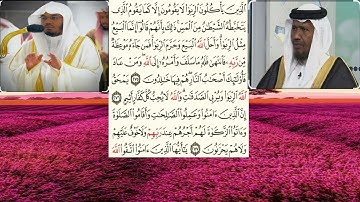 ٱلَّذِينَ يَأْكُلُونَ ٱلرِّبَوٰا۟ لَا يَقُومُونَ إِلَّا كَمَا يَقُومُ ٱلَّذِى
يَتَخَبَّطُهُ ٱلشَّيْطَٰنُ مِنَ ٱلْمَسِّ ذَٰلِكَ بِأَنَّهُمْ قَالُوٓا۟ إِنَّمَا ٱلْبَيْعُ
مِثْلُ ٱلرِّبَوٰا۟ وَأَحَلَّ ٱللَّهُ ٱلْبَيْعَ وَحَرَّمَ ٱلرِّبَوٰا۟ فَمَن جَآءَهُۥ مَوْعِظَةٌ
مِّن رَّبِّهِۦ فَٱنتَهَىٰ فَلَهُۥ مَا سَلَفَ وَأَمْرُهُۥٓ إِلَى ٱللَّهِ وَمَنْ عَادَ
فَأُو۟لَٰٓئِكَ أَصْحَٰبُ ٱلنَّارِ هُمْ فِيهَا خَٰلِدُونَ ٢٧٥ يَمْحَقُ
ٱللَّهُ ٱلرِّبَوٰا۟ وَيُرْبِى ٱلصَّدَقَٰتِ وَٱللَّهُ لَا يُحِبُّ كُلَّ كَفَّارٍ أَثِيمٍ ٢٧٦
إِنَّ ٱلَّذِينَ ءَامَنُوا۟ وَعَمِلُوا۟ ٱلصَّٰلِحَٰتِ وَأَقَامُوا۟ ٱلصَّلَوٰةَ
وَءَاتَوُا۟ ٱلزَّكَوٰةَ لَهُمْ أَجْرُهُمْ عِندَ رَبِّهِمْ وَلَا خَوْفٌ عَلَيْهِمْ
وَلَا هُمْ يَحْزَنُونَ ٢٧٧ يَٰٓأَيُّهَا ٱلَّذِينَ ءَامَنُوا۟ ٱتَّقُوا۟ ٱللَّهَ